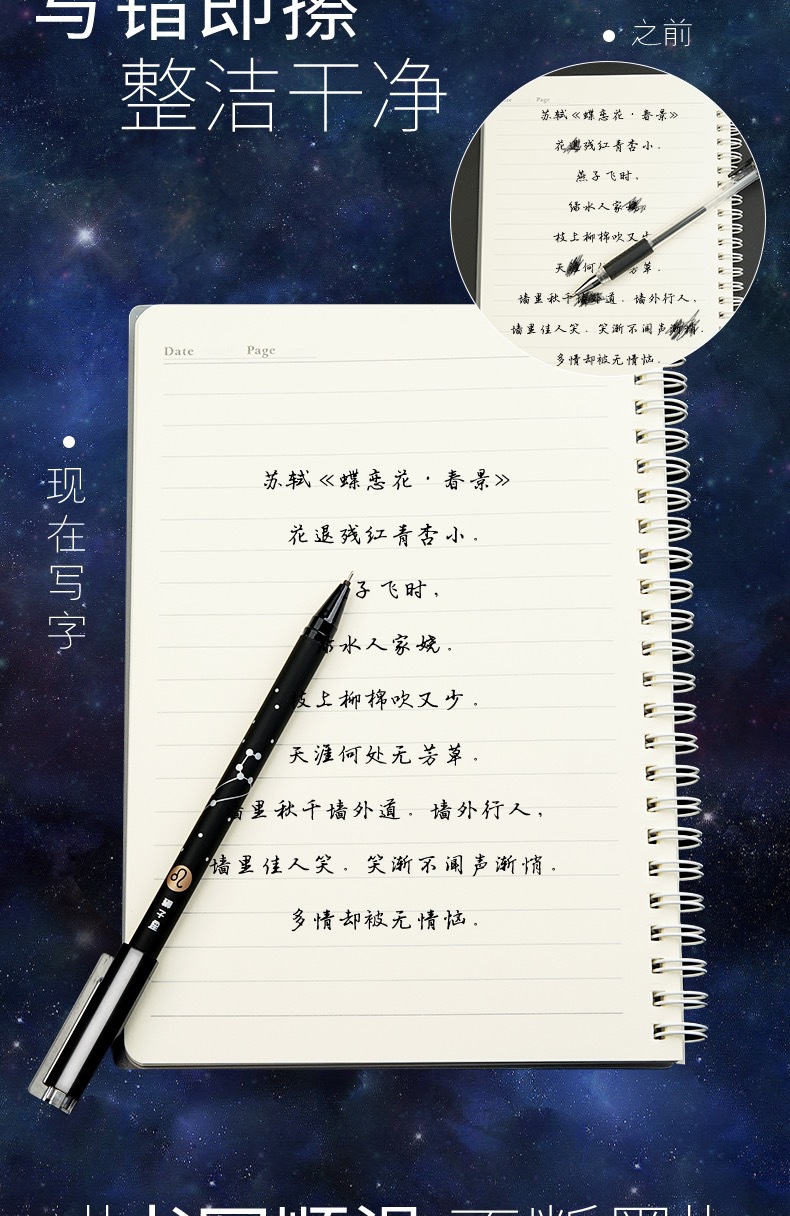 写错即擦
整洁干净
之前
Page
苏轼《蝶恋花·春景》
花退残红青杏小。
燕子飞时，
绿水人家
枝上柳棉吹又少
天 何 芳草。
墙里秋千墙外道。墙外行人，
墙里佳人笑。笑渐不闻声渐悄。
多情却被无情恼。
Date Page
现在写字
苏轼《蝶恋花·春景》
花退残红青杏小。
子飞时，
水人家娆。
枝上柳棉吹又少。
天涯何处无芳草。
墙里秋千墙外道。墙外行人，
墙里佳人笑。笑渐不闻声渐悄。
多情却被无情恼。
狮子座